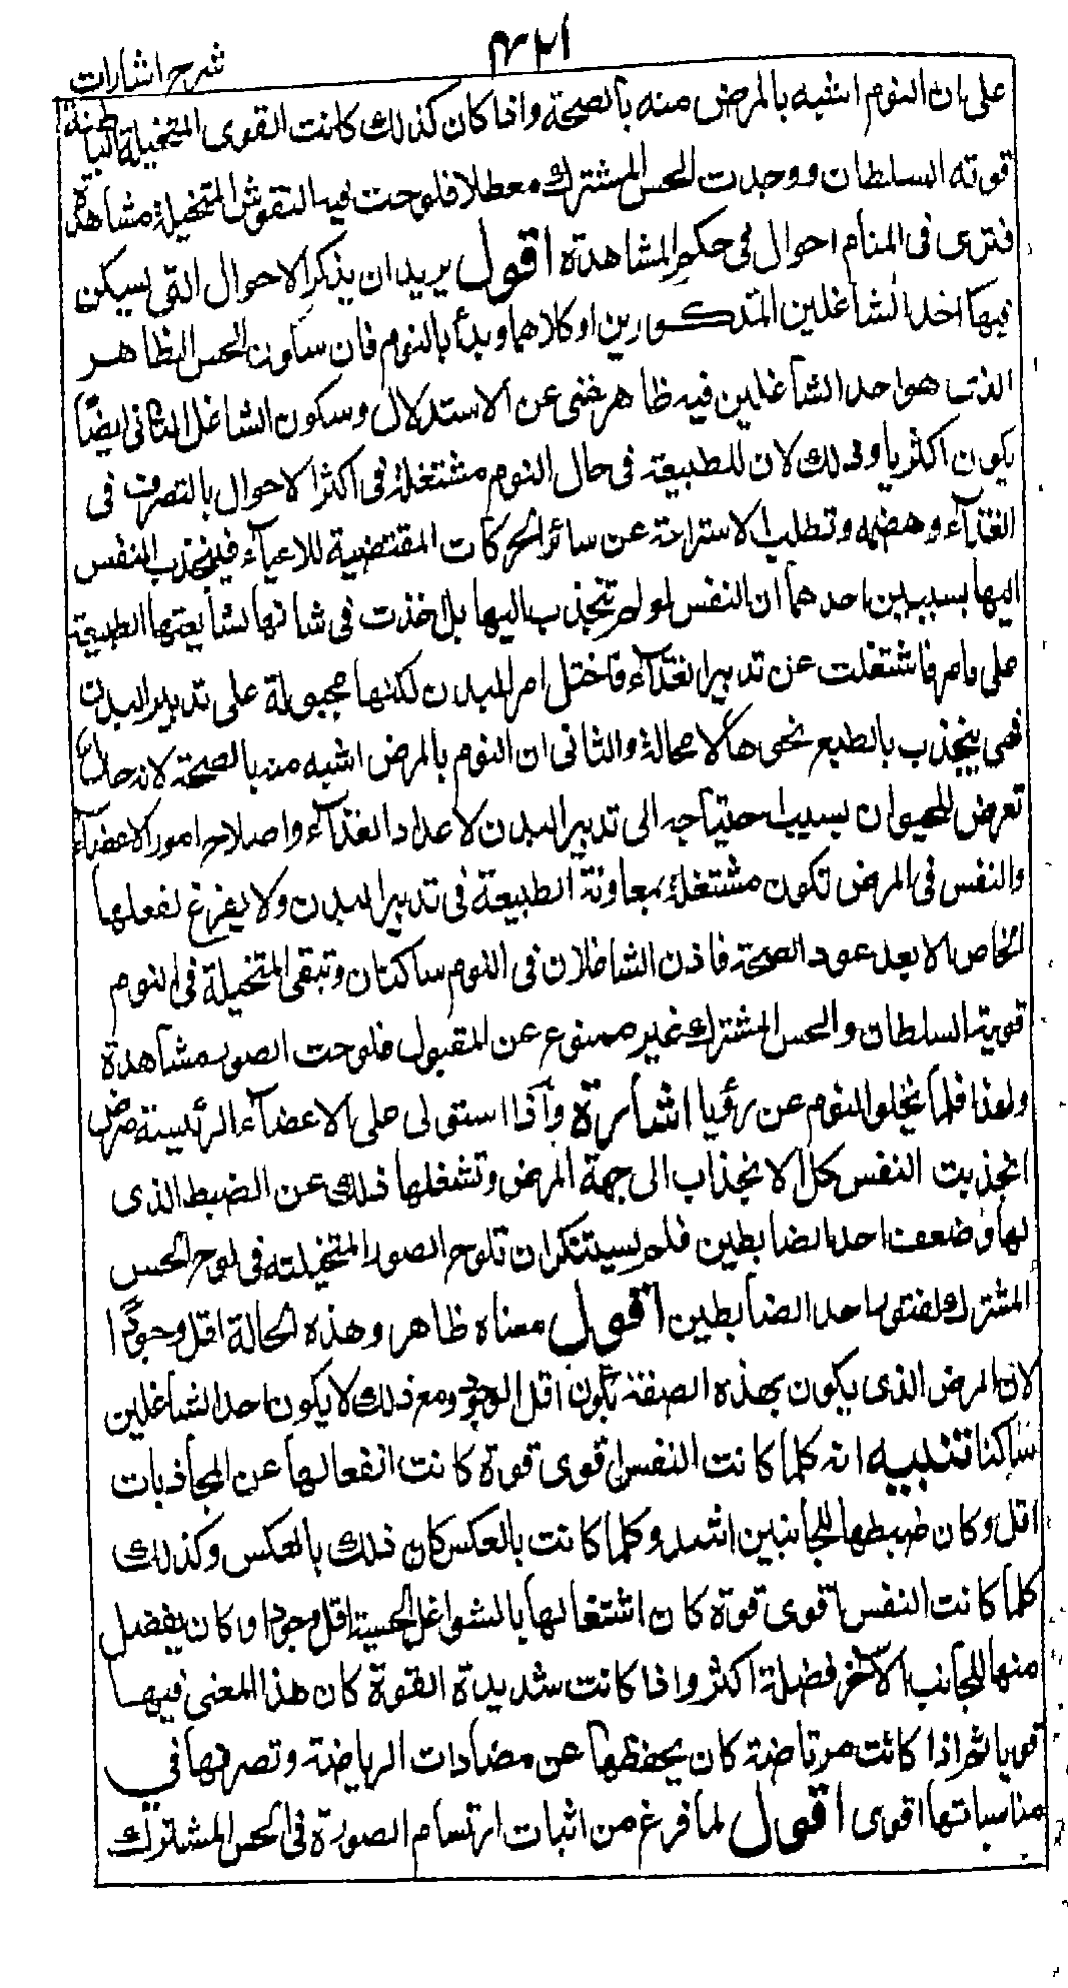 شرح اشارات
على ان النوم اشبه بالمرض منه بالصحة واذا كان كذلك كانت القوى المتخيلة الباطنة
قوية السلطان ووجدت الحس المشترك معطلا فلوحت فيه النقوش المتخيلة مشاهدة
فترى فى المنام احوال فى حكم المشاهدة اقول يريد ان يذكر الاحوال التى يسكن
فيها احد الشاغلين المذكورين او كلاهما وبدأ بالنوم فان سكون الحس الظاهر
الذى هو احد الشاغلين فيه ظاهر غنى عن الاستدلال وسكون الشاغل الثانى ايضًا
يكون اكثريا وذلك لان للطبيعة فى حال النوم مشتغلة فى اكثر الاحوال بالتصرف فى
الغذآء وهضمه وتطلب الاستراحة عن سائر الحركات المقتضية للاعيآء فينجذب النفس
اليها بسببين احدهما ان النفس لو لم تنجذب اليها بل اخذت فى شانها لشايعتها الطبيعة
على ما مر فاشتغلت عن تدبير الغذآء فاختل امر البدن لكنها مجبولة على تدبير البدن
فهى ينجذب بالطبع نحوها لا محالة والثانى ان النوم بالمرض اشبه منه بالصحة لانه حال
تعرض للحيوان بسبب احتياجه الى تدبير البدن لاعداد الغذآء واصلاح امور الاعضآء
والنفس فى المرض تكون مشتغلة بمعاونة الطبيعة فى تدبير البدن ولا يفرغ لفعلها
الخاص الا بعد عود الصحة فاذن الشاغلان فى النوم ساكنان وتبقى المتخيلة فى النوم
قوية السلطان والحس المشترك غير ممنوع عن القبول فلوحت الصور مشاهدة
ولهذا قلما يخلو النوم عن رؤيا اشارة واذا استولى على الاعضآء الرئيسة مرض
انجذبت النفس كل الانجذاب الى جهة المرض وتشغلها ذلك عن الضبط الذى
لها وضعف احد الضابطين فلم يستنكر ان تلوح الصور المتخيلة فى لوح الحس
المشترك لفتور احد الضابطين اقول معناه ظاهر وهذه الحالة اقل وجودًا
لان المرض الذى يكون بهذه الصفة يكون اقل الوجود ومع ذلك لا يكون احد الشاغلين
ساكنا تنبيه انه كلما كانت النفس اقوى قوة كانت انفعالها عن المجاذبات
اقل وكان ضبطها للجانبين اشد وكلما كانت بالعكس كان ذلك بالعكس وكذلك
كلما كانت النفس اقوى قوة كان اشتغالها بالشواغل الحسية اقل وجودا وكان يفضل
منها للجانب الآخر فضلة اكثر واذا كانت شديدة القوة كان هذا المعنى فيها
قويا ثم اذا كانت مرتاضة كان يحفظها عن مضادات الرياضة وتصرفها فى
مناسباتها اقوى اقول لما فرغ من اثبات ارتسام الصورة فى الحس المشترك